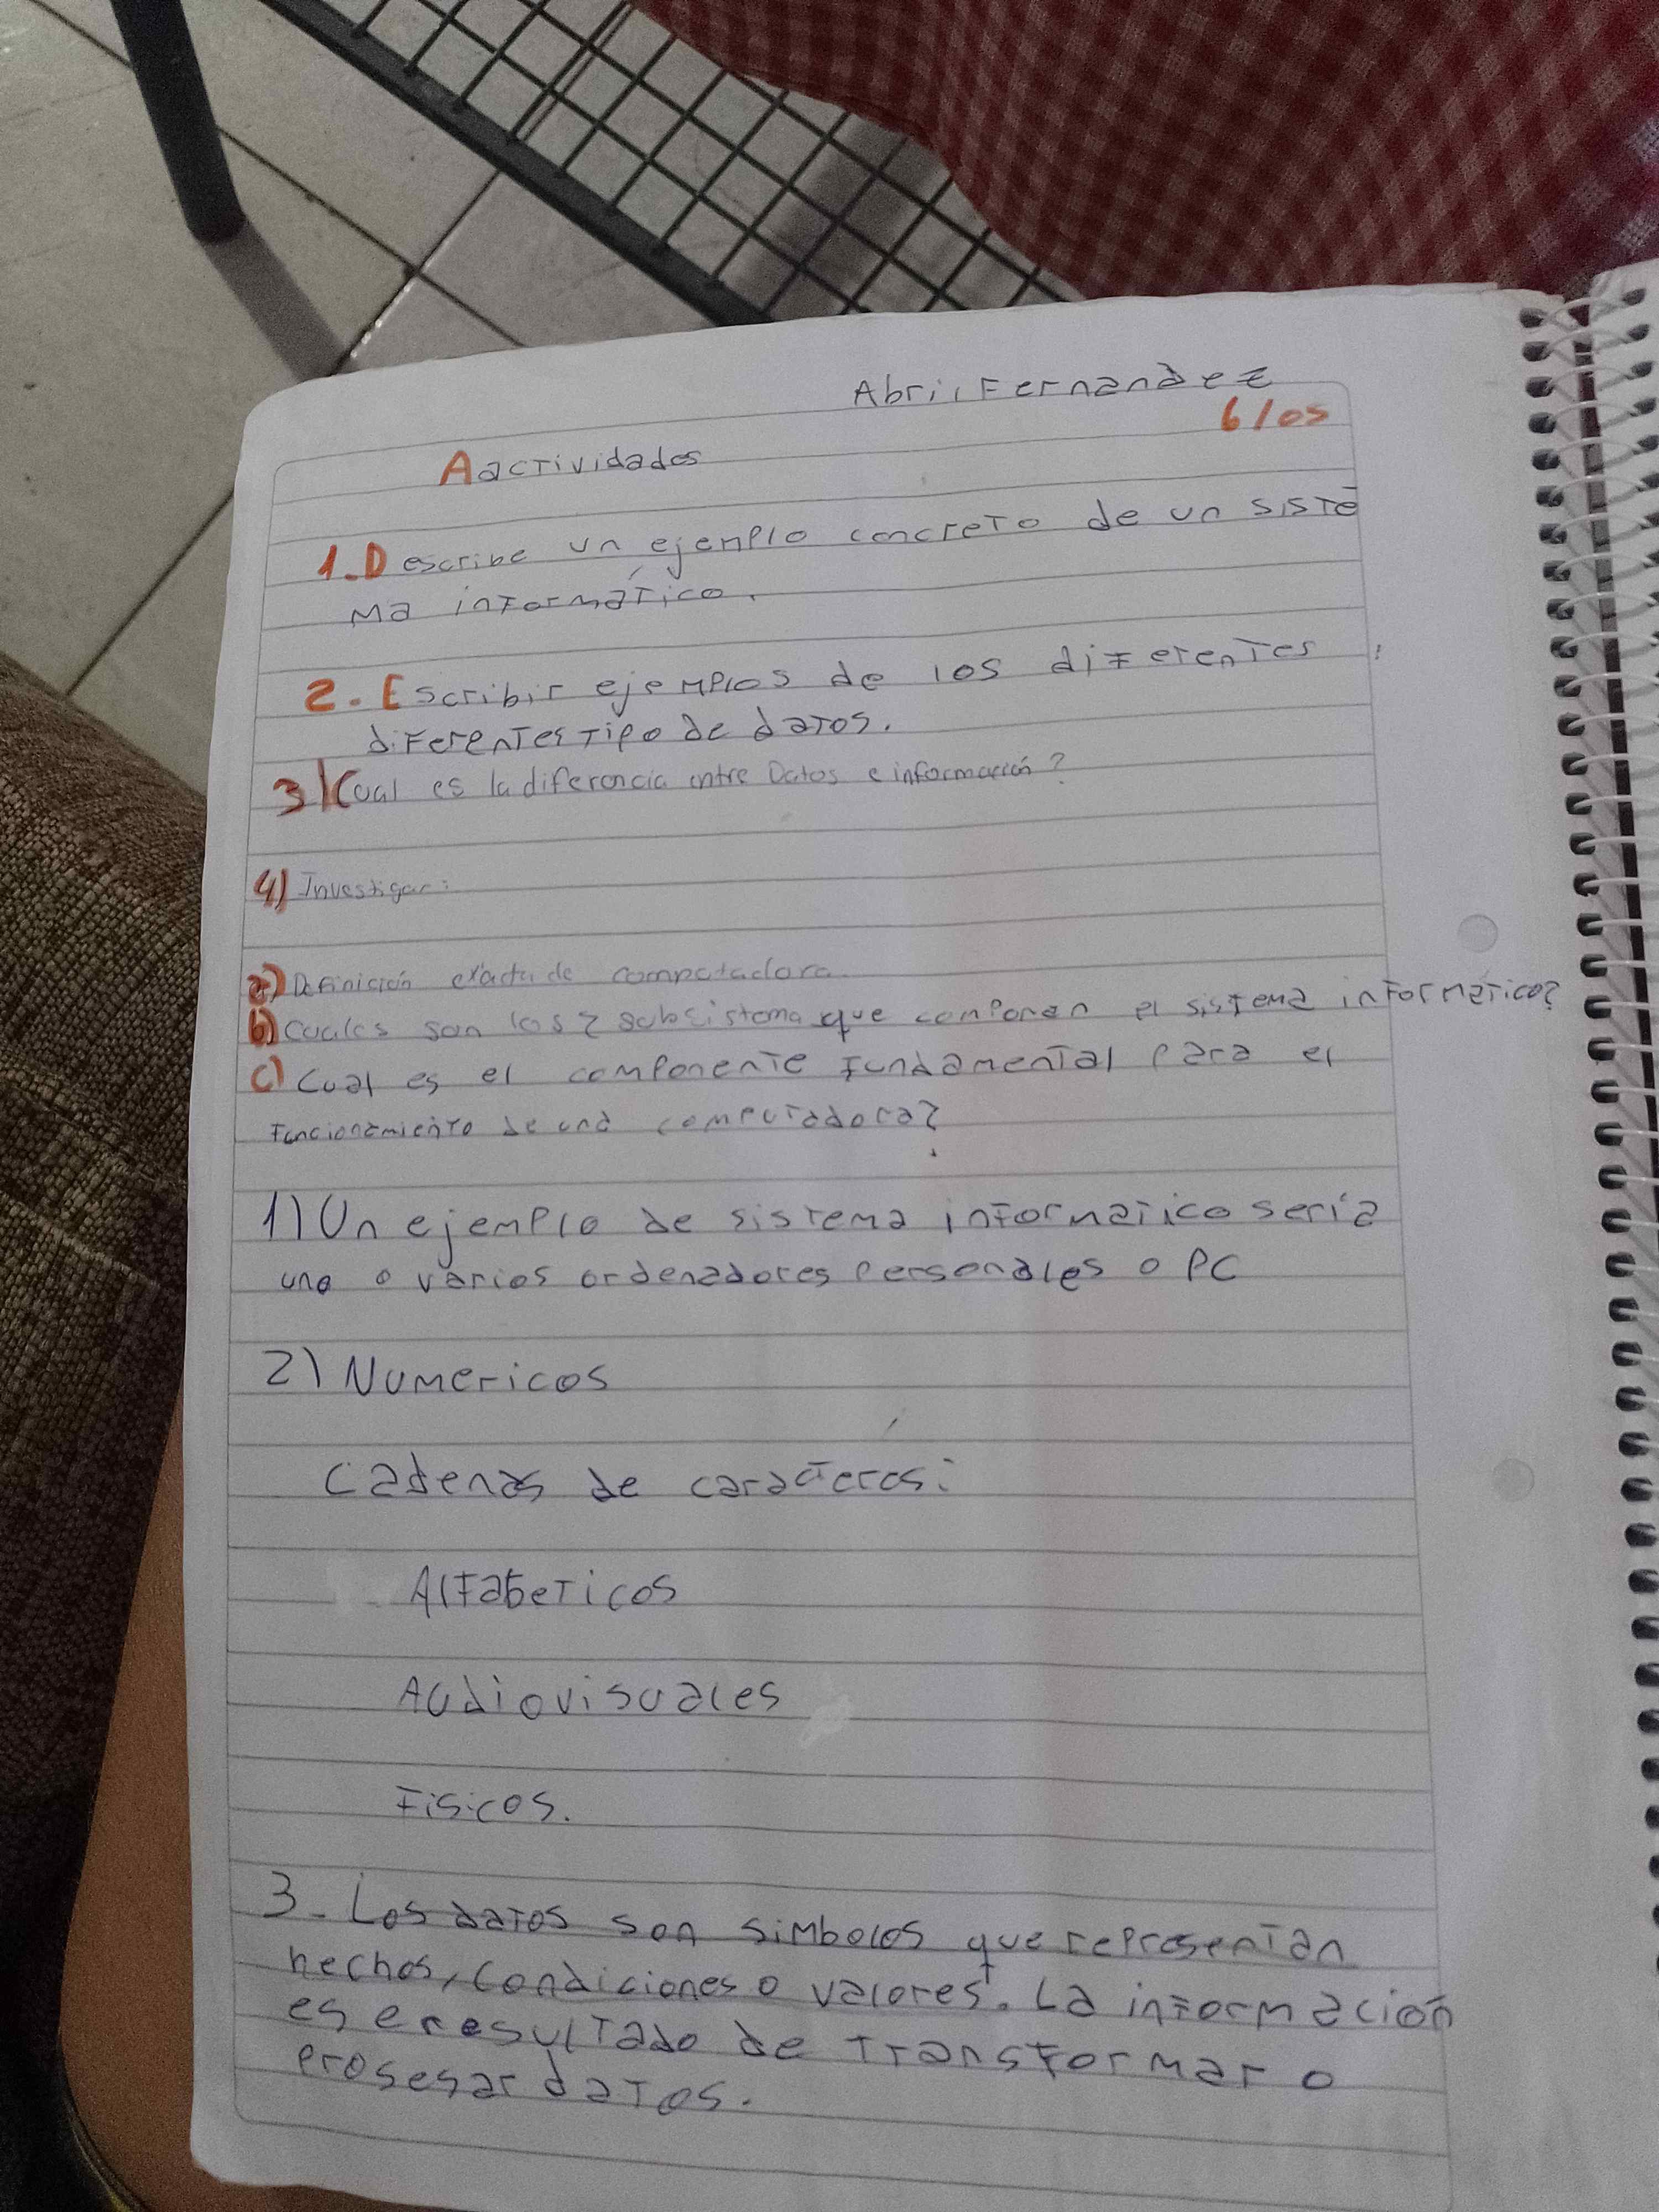 Abril Fernandez
6/05
Aactividades
1. Describe un ejemplo concreto de un siste
ma informático.
2. Escribir ejemplos de los diferentes
diferentes tipo de datos.
3) Cual es la diferencia entre Datos e información?
4) Investigar:
a) Definición exacta de computadora.
b) cuales son los 2 subsistema que componen el sistema informático?
c) Cual es el componente fundamental para el
funcionamiento de una computadora?
1) Un ejemplo de sistema informatico sería
uno o varios ordenadores personales o PC
2) Numericos
Cadenas de caracteres:
Alfabeticos
Audiovisuales
Fisicos.
3. Los datos son simbolos que representan
hechos, condiciones o valores. La información
es e resultado de transformar o
prosesar datos.